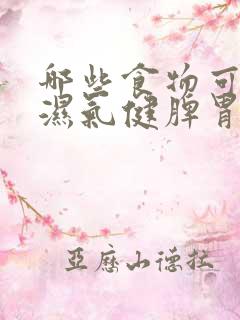 哪些食物可
濕氣健脾胃
亞歷山德拉